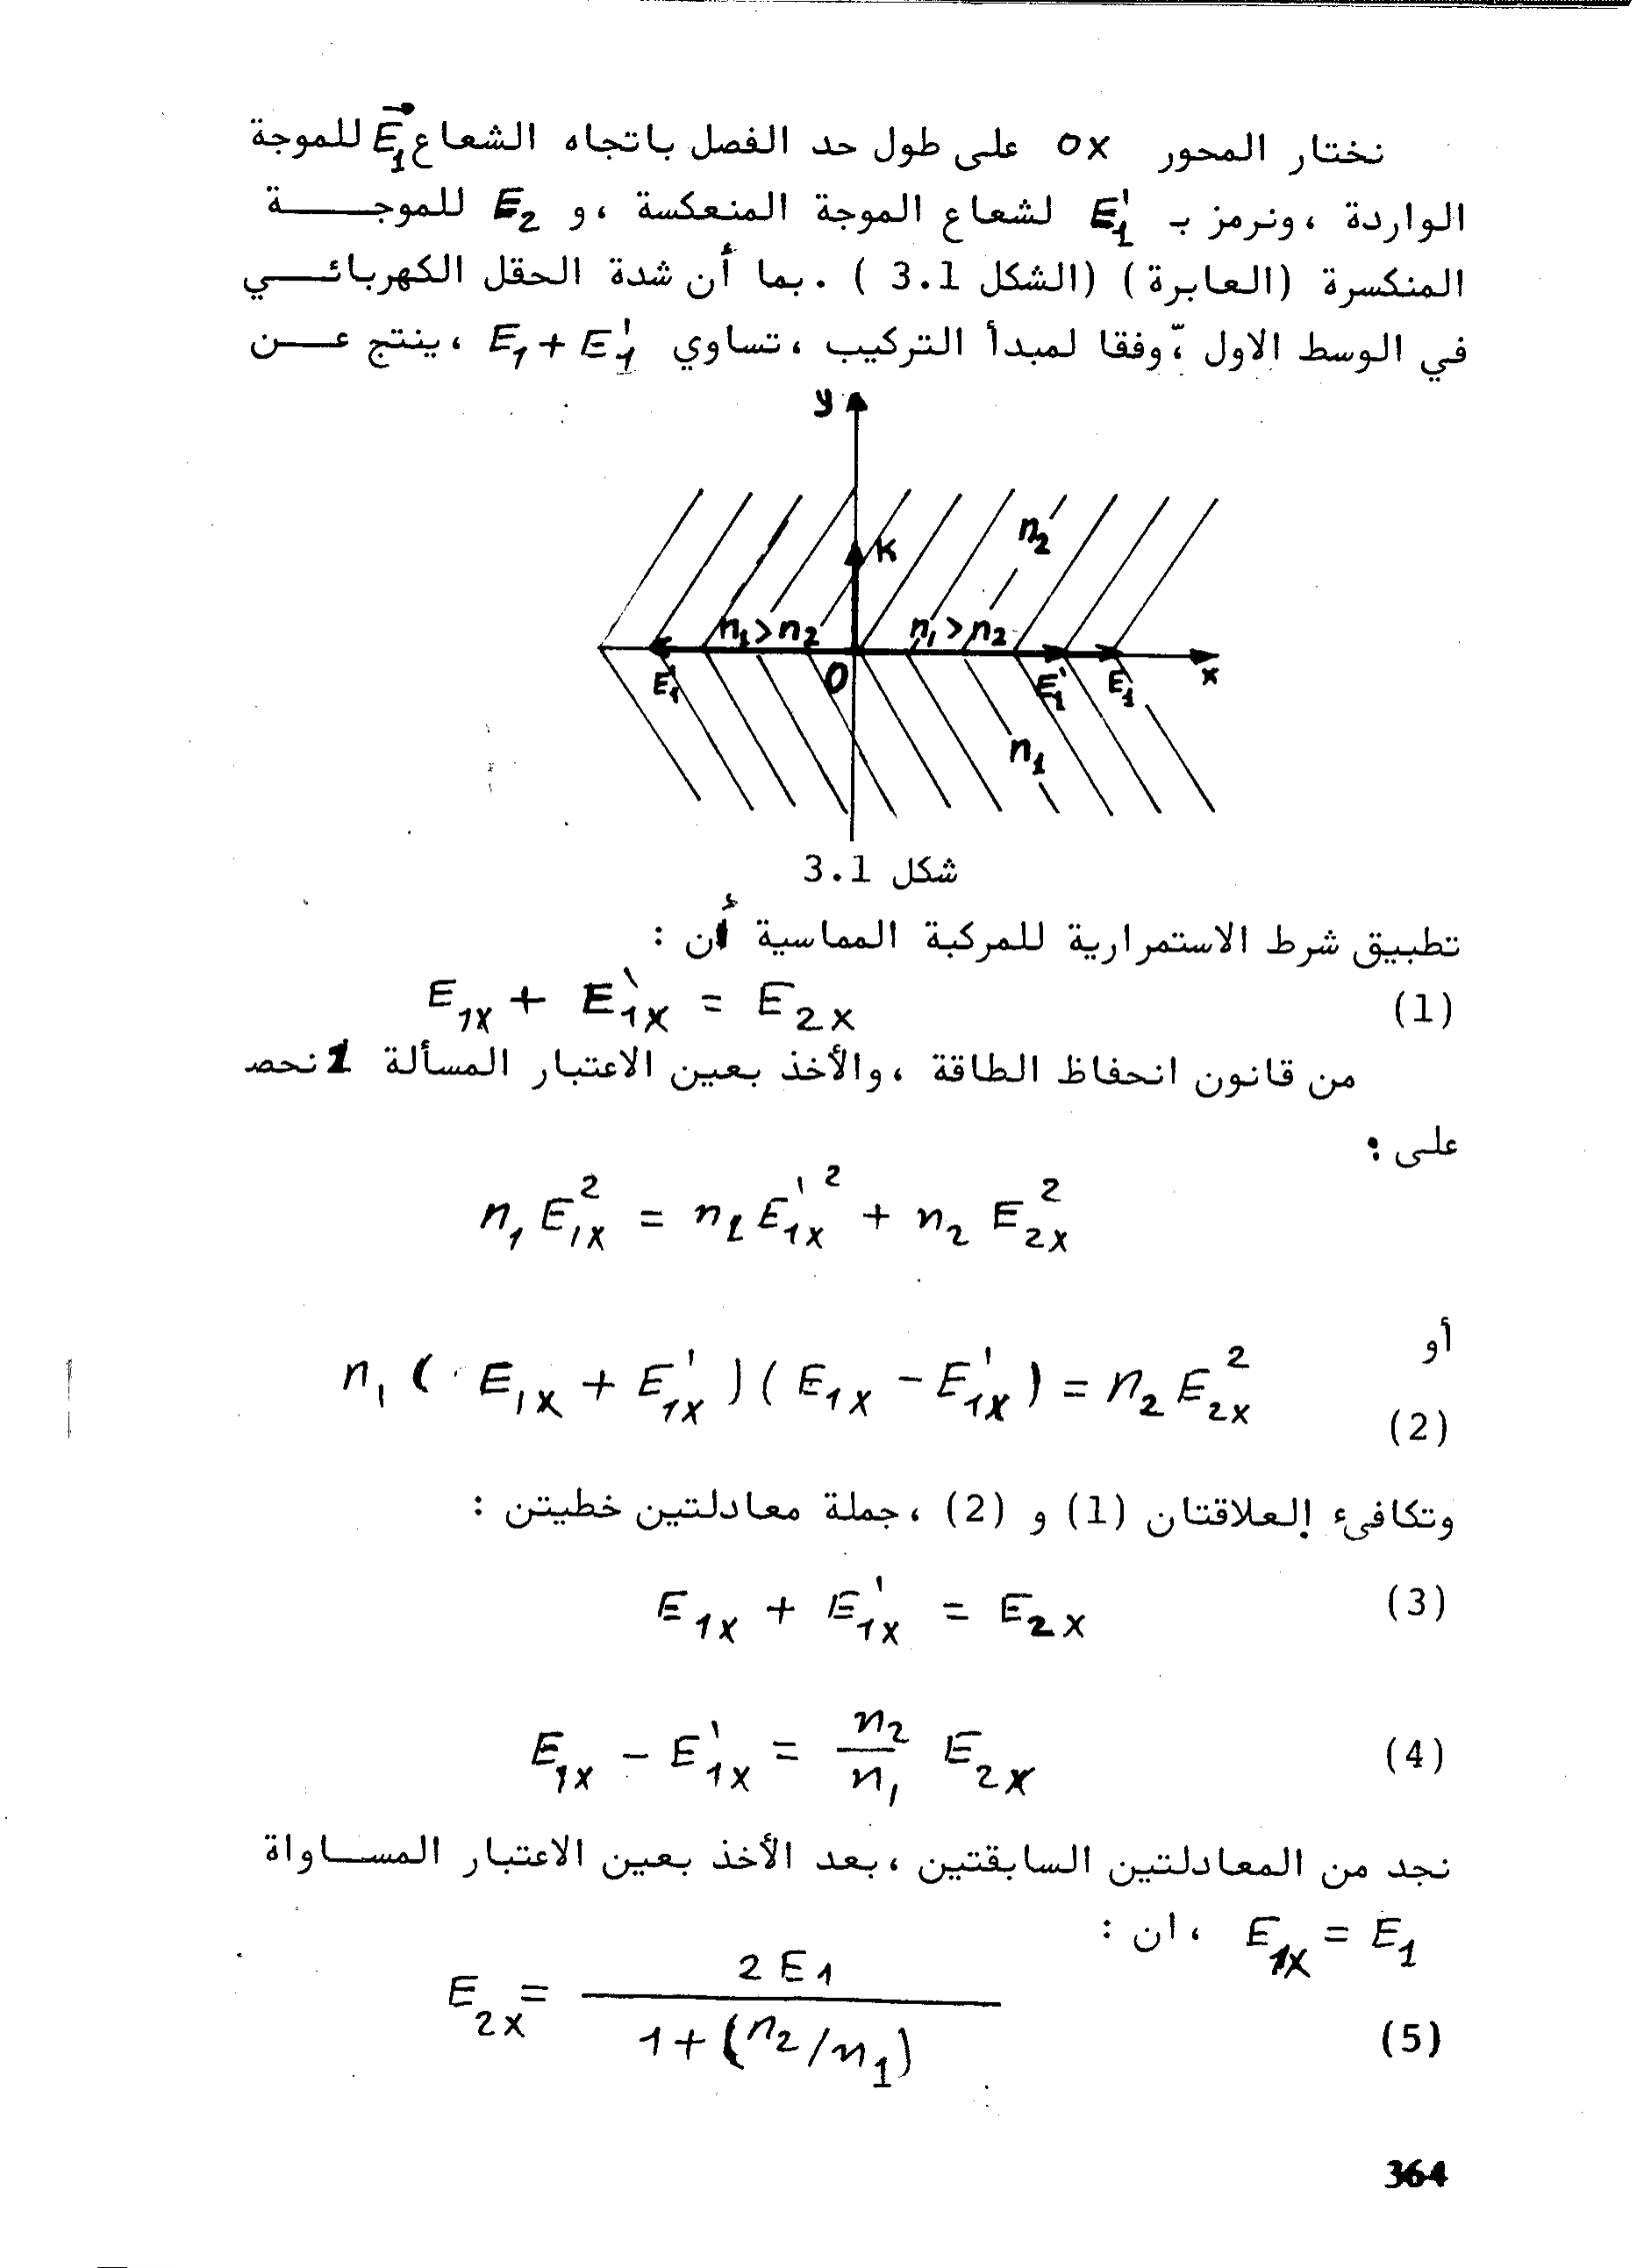 نختار المحور OX على طول حد الفصل باتجاه الشعاع E⃗₁ للموجة
الواردة ، ونرمز بـ E'₁ لشعاع الموجة المنعكسة ، و E₂ للموجـــة
المنكسرة (العابرة) (الشكل 3.1 ) . بما أن شدة الحقل الكهربائــي
في الوسط الاول ، وفقا لمبدأ التركيب ، تساوي E₁ + E'₁ ، ينتج عــن
y
K
n₂
n₁>n₂ n₁>n₂
E'₁ O E'₁ E₁ x
n₁
شكل 3.1
تطبيق شرط الاستمرارية للمركبة المماسية أن :
E₁ₓ + E'₁ₓ = E₂ₓ (1)
من قانون انحفاظ الطاقة ، والأخذ بعين الاعتبار المسألة 1 نحصـ
على :
n₁ E₁ₓ² = n₁ E'₁ₓ² + n₂ E₂ₓ²
أو
n₁ ( E₁ₓ + E'₁ₓ ) ( E₁ₓ - E'₁ₓ ) = n₂ E₂ₓ² (2)
وتكافىء العلاقتان (1) و (2) ، جملة معادلتين خطيتن :
E₁ₓ + E'₁ₓ = E₂ₓ (3)
E₁ₓ - E'₁ₓ = n₂/n₁ E₂ₓ (4)
نجد من المعادلتين السابقتين ، بعد الأخذ بعين الاعتبار المســاواة
E₁ₓ = E₁ ، ان :
E₂ₓ = 2 E₁ / 1 + (n₂/n₁) (5)
364